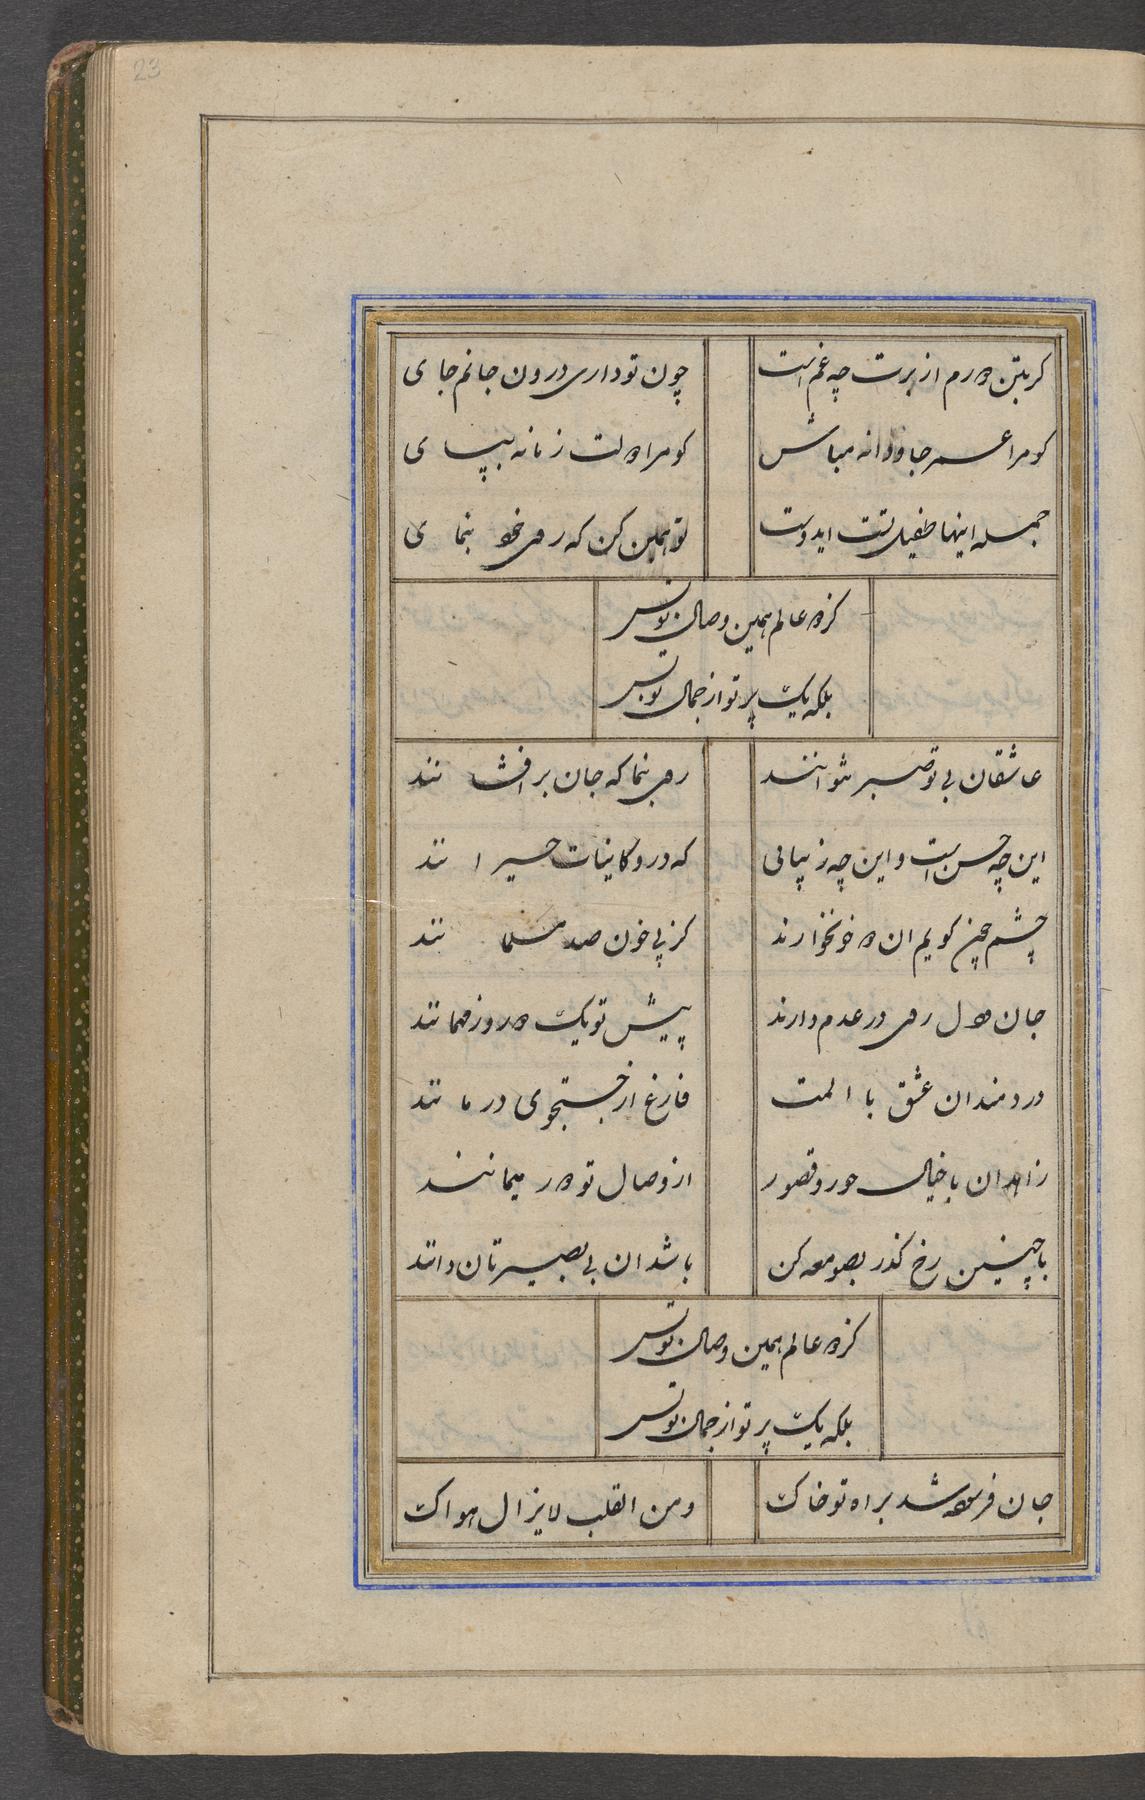 23
کر بتن دورم از برت چه غم است
چون تو داری درون جانم جای
کو مرا عمر جاودانه مباش
کو مرا دولت زمانه مپای
جمله اینها طفیل تست ایدوست
تو همین کن که روی خود بنمای
کز دو عالم همین وصال تو بس
بلکه یک پرتو از جمال تو بس
عاشقان بی تو صبر نتوانند
روی بنما که جان برافشانند
این چه حسن است و این چه زیبائی
که درو کاینات حیرانند
چشم چین کویم ان دو خونخوارند
کز پی خون صد مسلمانند
جان و دل روی در عدم دارند
پیش تو یک دو روز مهمانند
دردمندان عشق با المت
فارغ از جستجوی درمانند
زاهدان با خیال حور و قصور
از وصال تو دور میمانند
با چنین رخ کذر بصومعه کن
باشد ان بی بصیرتان دانند
کز دو عالم همین وصال تو بس
بلکه یک پرتو از جمال تو بس
جان فرسوده شد براه تو خاک
و من القلب لا یزال هواک